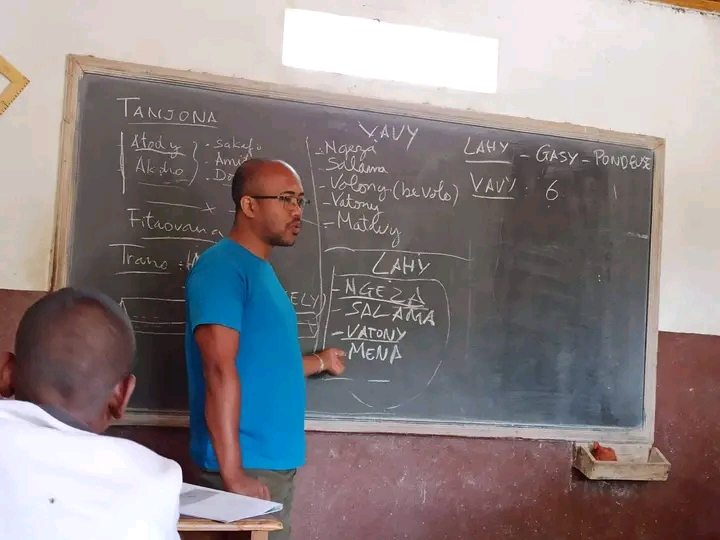 TANJONA
Atody
Akoho
- sakafo
- Ami
- Do
x
Fitaovana
Trano :
ELY
VAVY
- Ngeza
- Salama
- Volony (be volo)
- Vatony
- Mathuy
LAHY
- NGEZA
- SALAMA
- VATONY
- MENA
LAHY - GASY - PONDEUSE
VAVY : 6 1